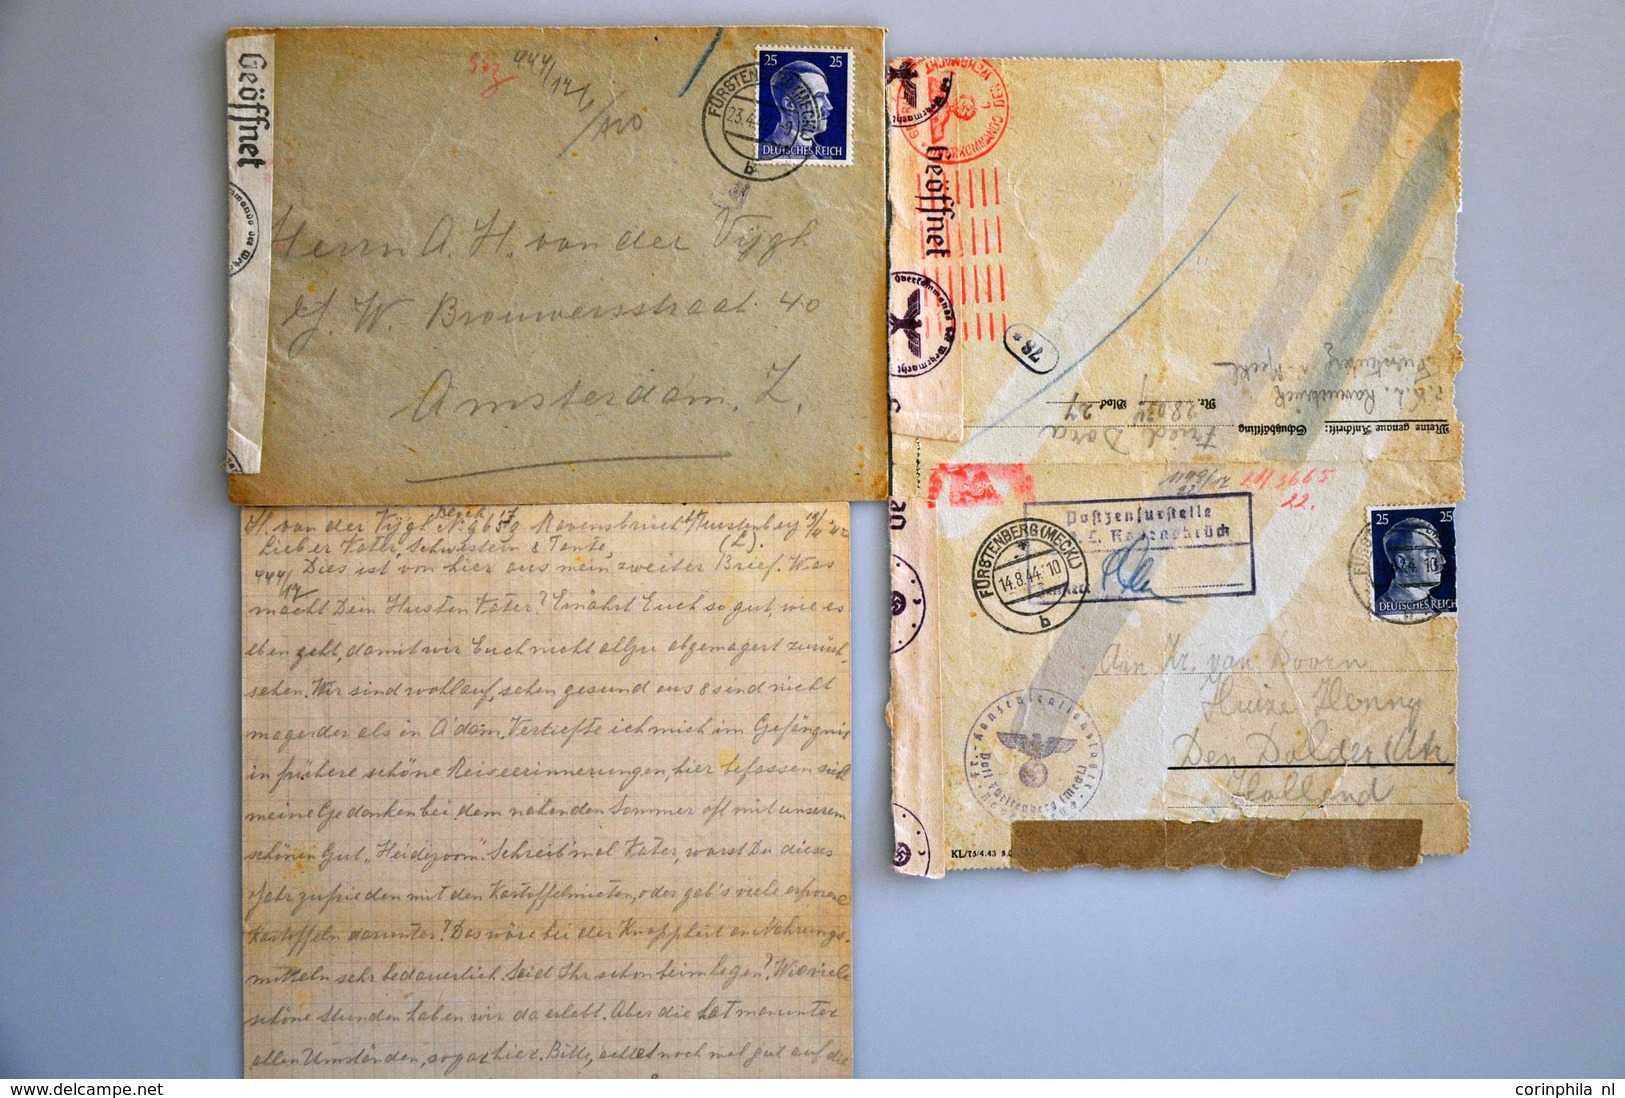 Geöffnet
444/
17
25 25
DEUTSCHES REICH
FÜRSTENBERG (MECKL)
b
Herrn A. H. van der Vijgh
W. Brouwersstraat 40
Amsterdam, Z.
H. van der Vijgh Block 17 Ravensbrück Fürstenberg
Lieber Vater, Schwestern & Tante,
444/ Dies ist von hier aus mein zweiter Brief. Was
17
macht Dein Husten Vater? Ernährt Euch so gut, wie es
eben geht, damit wir Euch nicht allzu abgemagert zurück-
sehen. Wir sind wohlauf, sehen gesund aus & sind nicht
magerder als in A'dam. Vertiefte ich mich im Gefängnis
in frühere schöne Reiseerinnerungen, hier befassen sich
meine Gedanken bei dem nahenden Sommer oft mit unserem
schönen Gut „Heidezoom". Schreib' mal Vater, warst Du dieses
Jahr zufrieden mit den Kartoffelmieten, oder gab's viele erfrorene
Kartoffeln darunter? Das wäre bei der Knappheit an Nahrungs-
mitteln sehr bedauerlich. Seid Ihr schon beim legen? Wie viele
schöne Stunden haben wir da erlebt. Aber die hat man unter
allen Umständen, sogar hier. Bitte, achtet noch mal gut auf die
Geöffnet
Oberkommando der Wehrmacht
78
Meine genaue Anschrift:
Schutzhäftling
Fried Dora
Nr. 28034 Block 24
F.K.L. Ravensbrück
Fürstenberg i. Meckl
21/3665
22.
Postzensurstelle
F.K.L. Ravensbrück
FÜRSTENBERG (MECKL)
14.8.44.10
b
25 25
DEUTSCHES REICH
Aan Fr. van Doorn
Huize Henny
Den Dolder (Utr,
Holland
Fr.-Konzentrationslager
Post Fürstenberg (Meckl)
KL/75/4.43
delcampe.net
corinphila nl